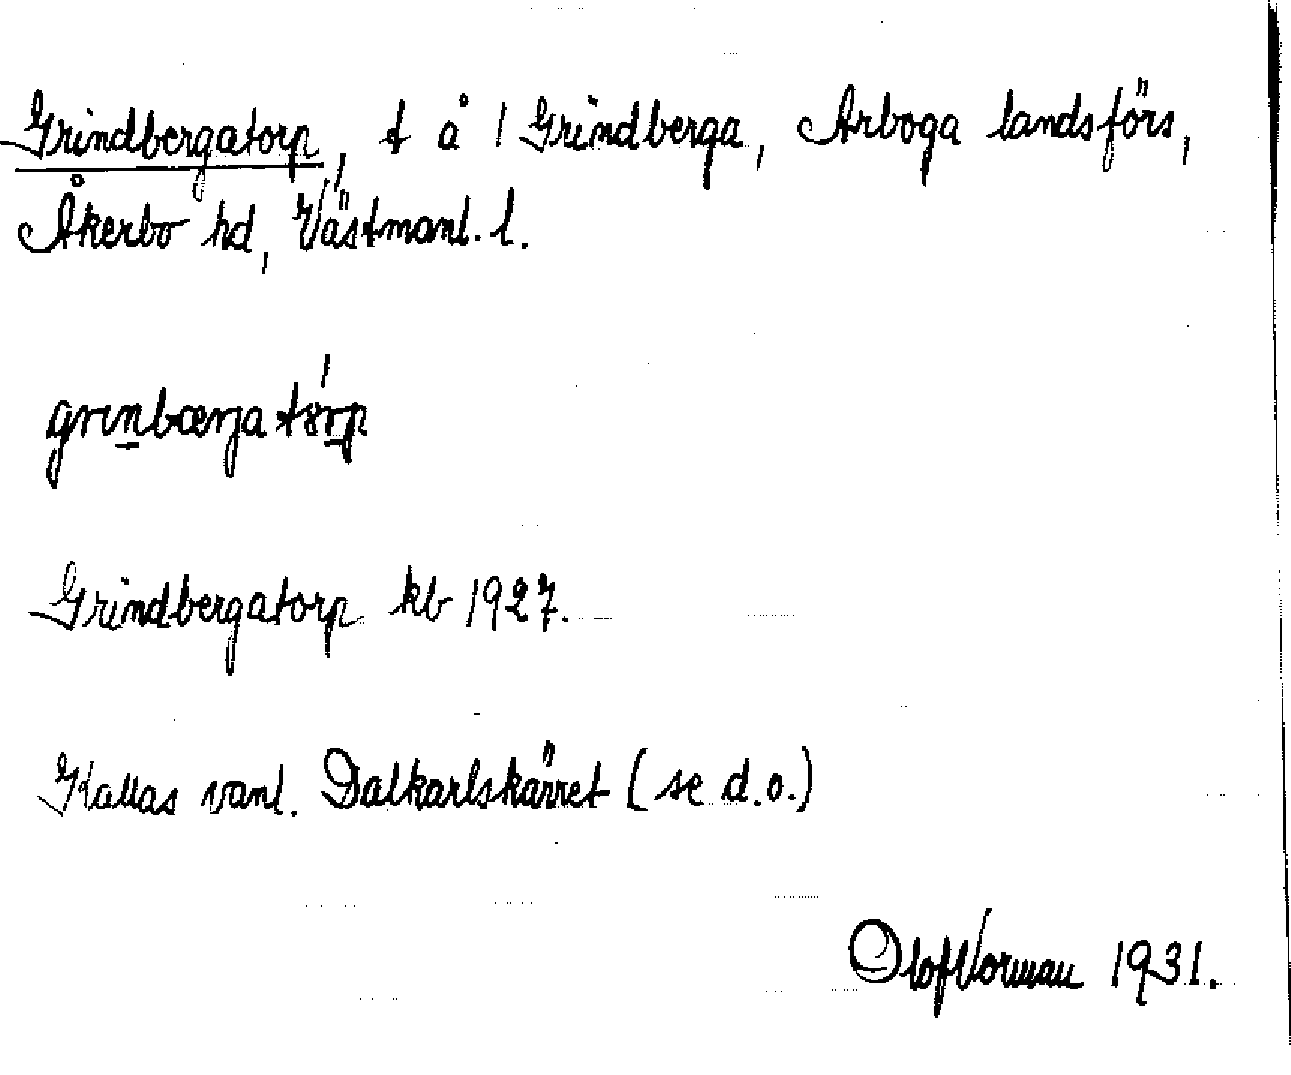 Grindbergatorp, t å 1 Grindberga, Arboga landsförs,
Åkerbo hd, Västmanl. l.
grinbærjatorp
Grindbergatorp kb 1927.
Kallas vanl. Dalkarlskärret (se d.o.)
Olof Vorman 1931.